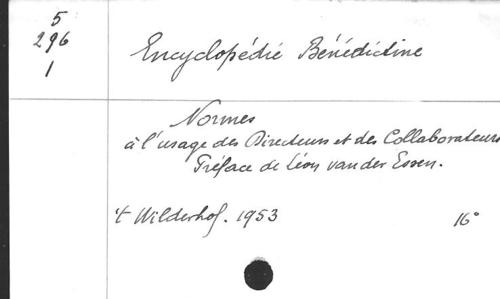 5
296
1
Encyclopédie Bénédictine
Normes
à l'usage des Directeurs et des Collaborateurs
Préface de Léon van der Essen.
't Wilderhof. 1953 16°